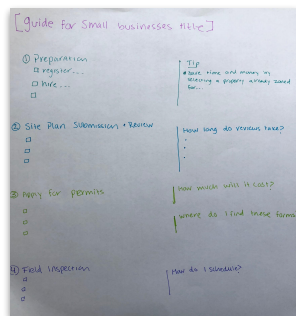 [guide for Small businesses title]
① Preparation
register...
hire...
Tip
Save time and money by
selecting a property already zoned
for...
② Site Plan Submission + Review
How long do reviews take?
③ Apply for permits
How much will it cost?
Where do I find these forms
④ Field Inspection
How do I schedule?